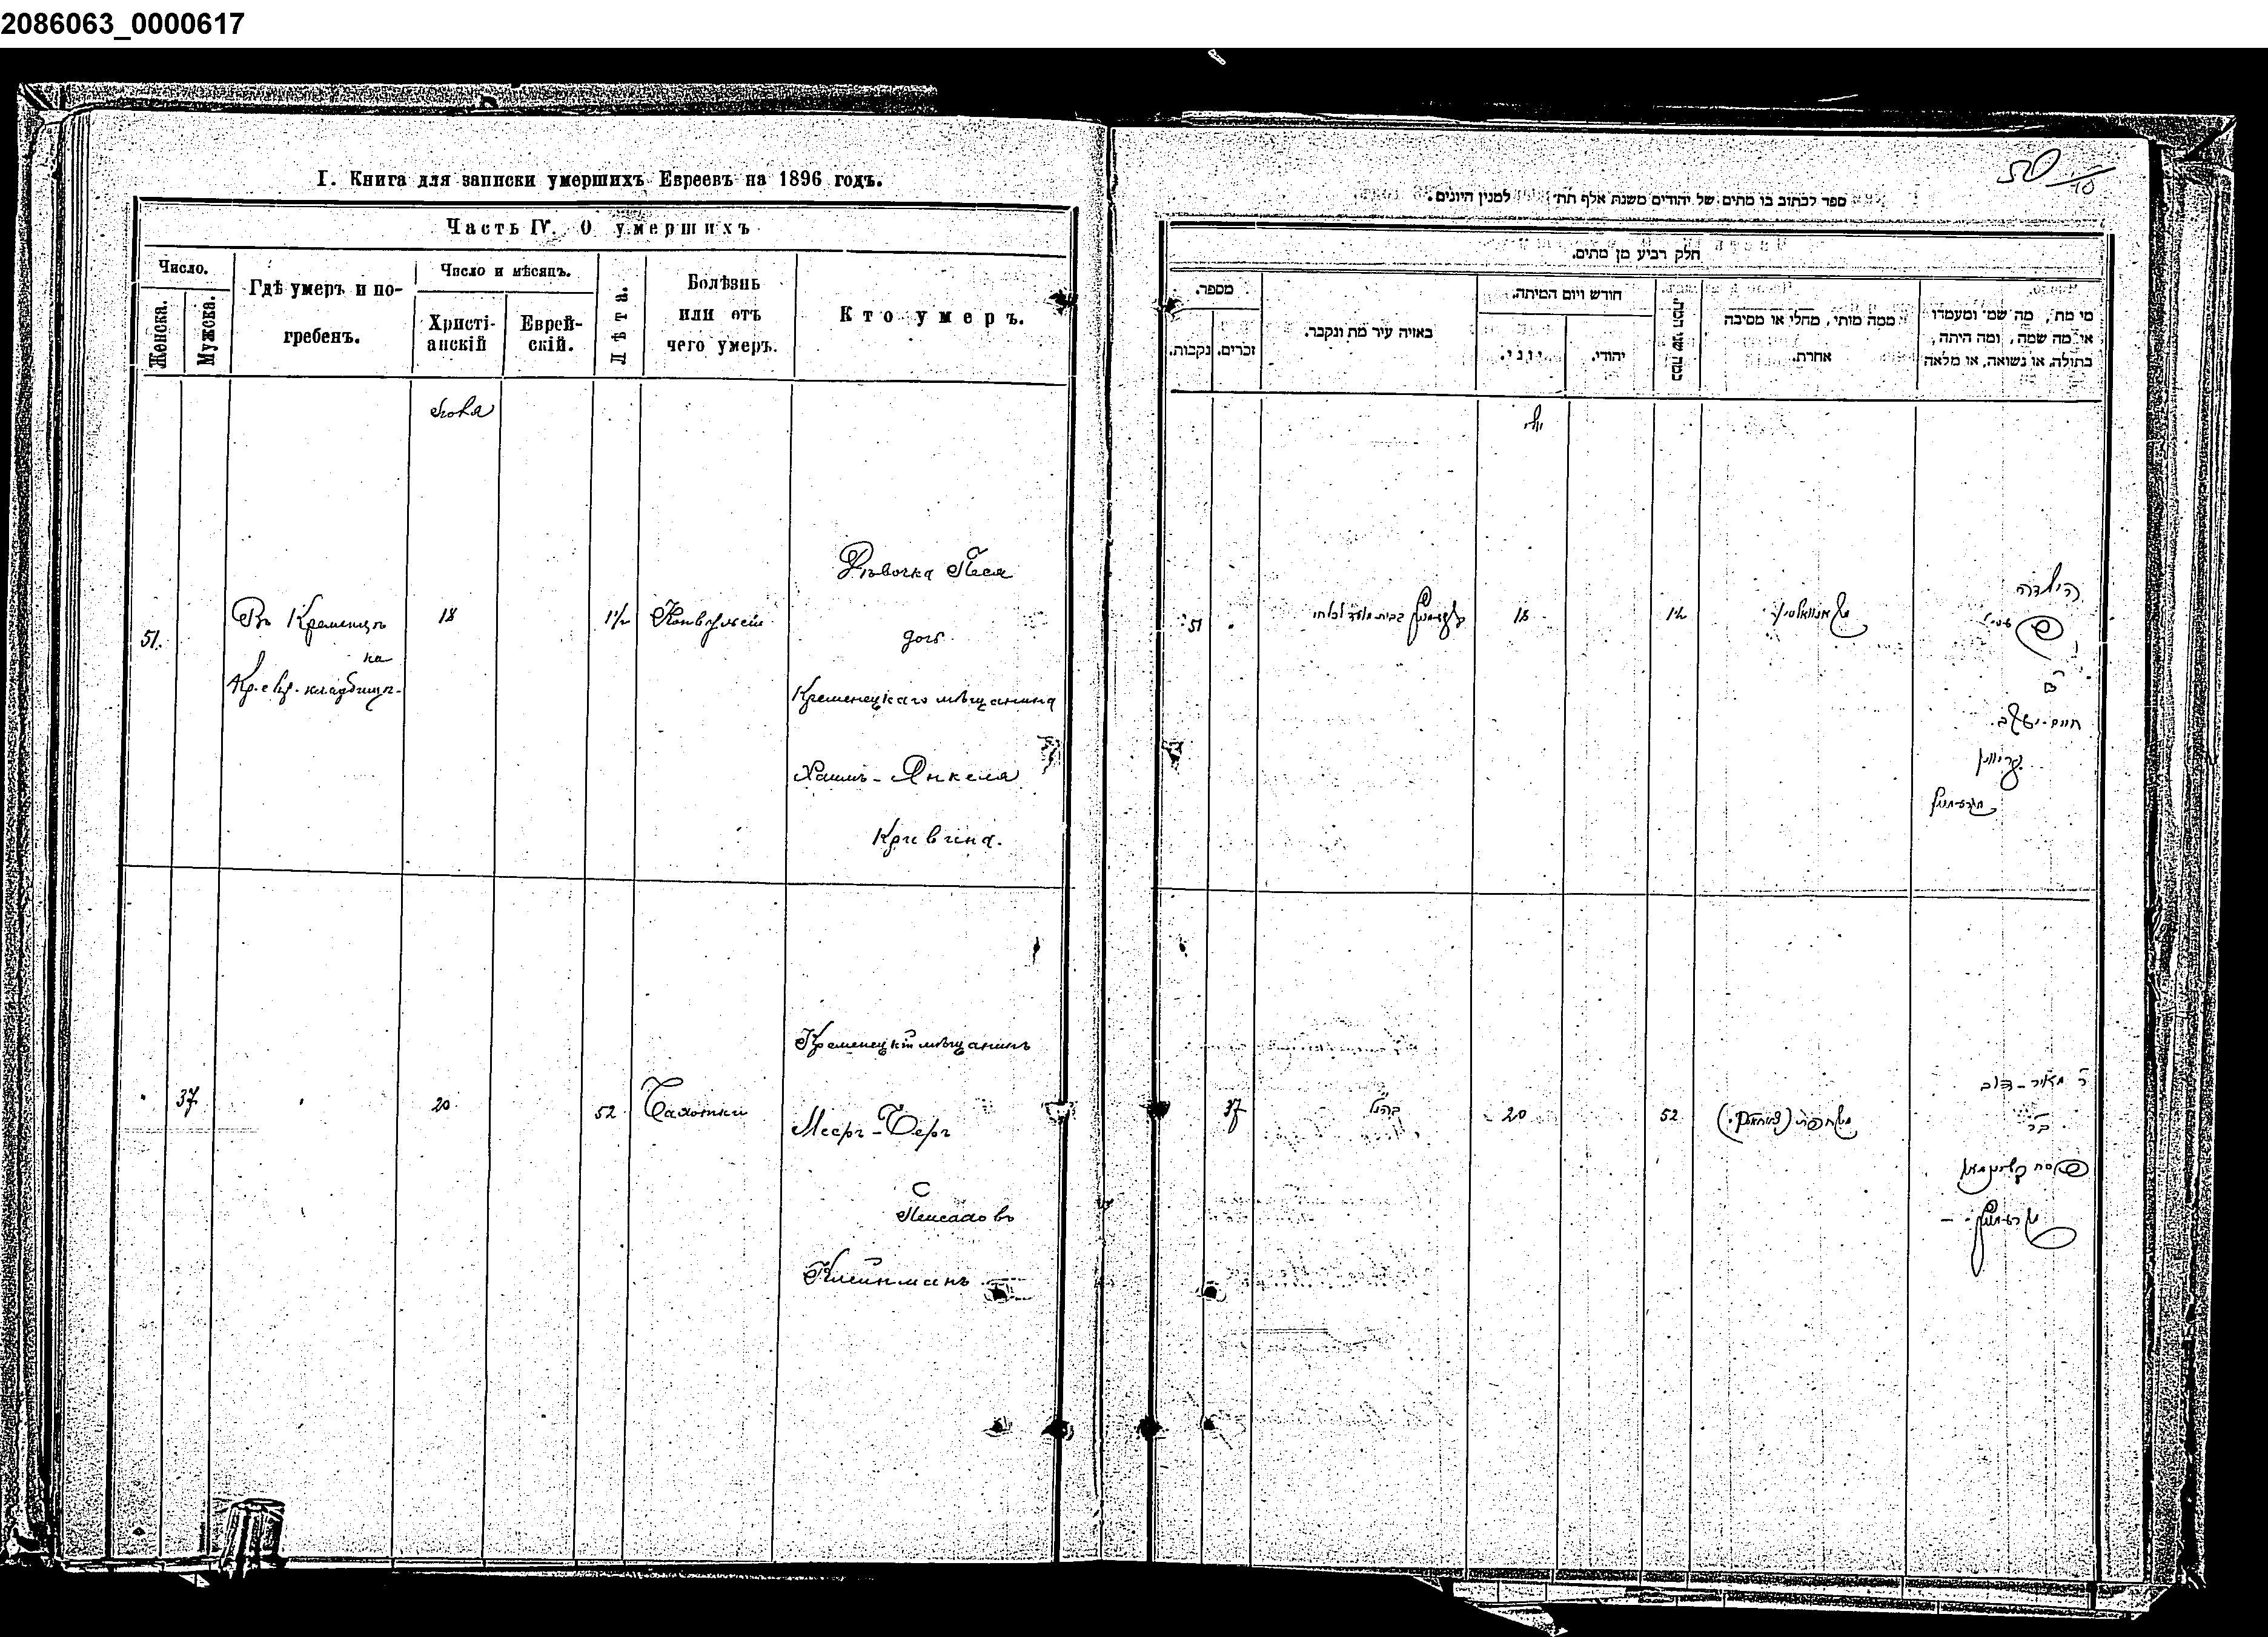 2086063_0000617
I. Книга для записки умершихъ Евреевъ на 1896 годъ.
Часть IV. О умершихъ
Число.
Женска.
Мужска.
Гдѣ умеръ и по-
гребенъ.
Число и мѣсяцъ.
Христі-
анскій
Еврей-
скій.
Лѣта.
Болѣзнь
или отъ
чего умеръ.
Кто умеръ.
Іюля
51.
Въ Кременцѣ
на
Кр. евр. кладбищѣ.
18
1½
Конвульсіи
Дѣвочка Песя
дочь
Кременецкаго мѣщанина
Хаимъ-Янкеля
Кривина.
37
20
52
Чахотки
Кременецкій мѣщанинъ
Мееръ-Беръ
Пейсаховъ
Клейнманъ
50
ספר לכתוב בו מתים של יהודים משנת אלף תת״ למנין היונים.
חלק רביע מן מתים.
מספר.
נקבות.
זכרים.
באיזה עיר מת ונקבר.
חודש ויום המיתה.
יוני.
יהודי.
כמה שני המת.
ממה מותי, מחלי או מסיבה
אחרת.
מי מת, מה שמי ומעמדו
אי מה שמה, ומה היתה,
בתולה, או נשואה, או מלאה
יולי
51
18
1½
הילדה
ב״ר
חיים-יעקב
קריווין
37
כהנ״ל
20
52
ר׳ מאיר-דוב
ב״ר
פסח קליינמאן